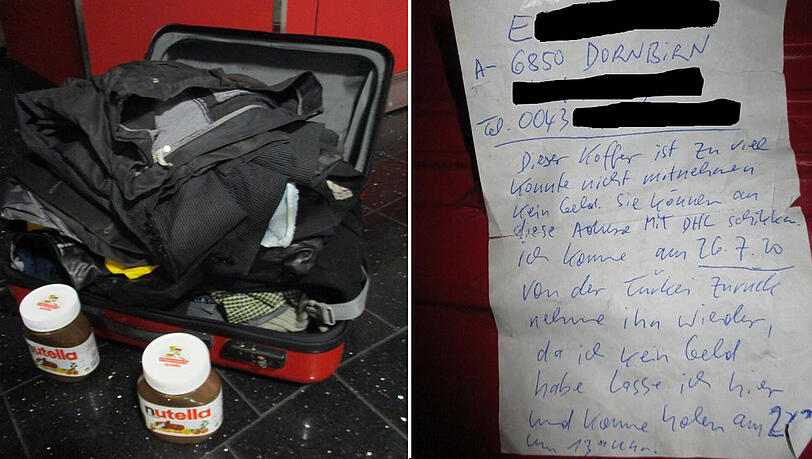 nutella
nutella
E
A-6850 DORNBIRN
Tel. 0043
Dieser Koffer ist zu viel
konnte nicht mitnehmen
kein Geld. Sie können an
diese Adresse Mit DHL schicken
ich komme am 26.7.20
von der Türkei zurück
nehme ihn wieder,
da ich kein Geld
habe lasse ich hier
und komme holen am
um 13 Uhr.